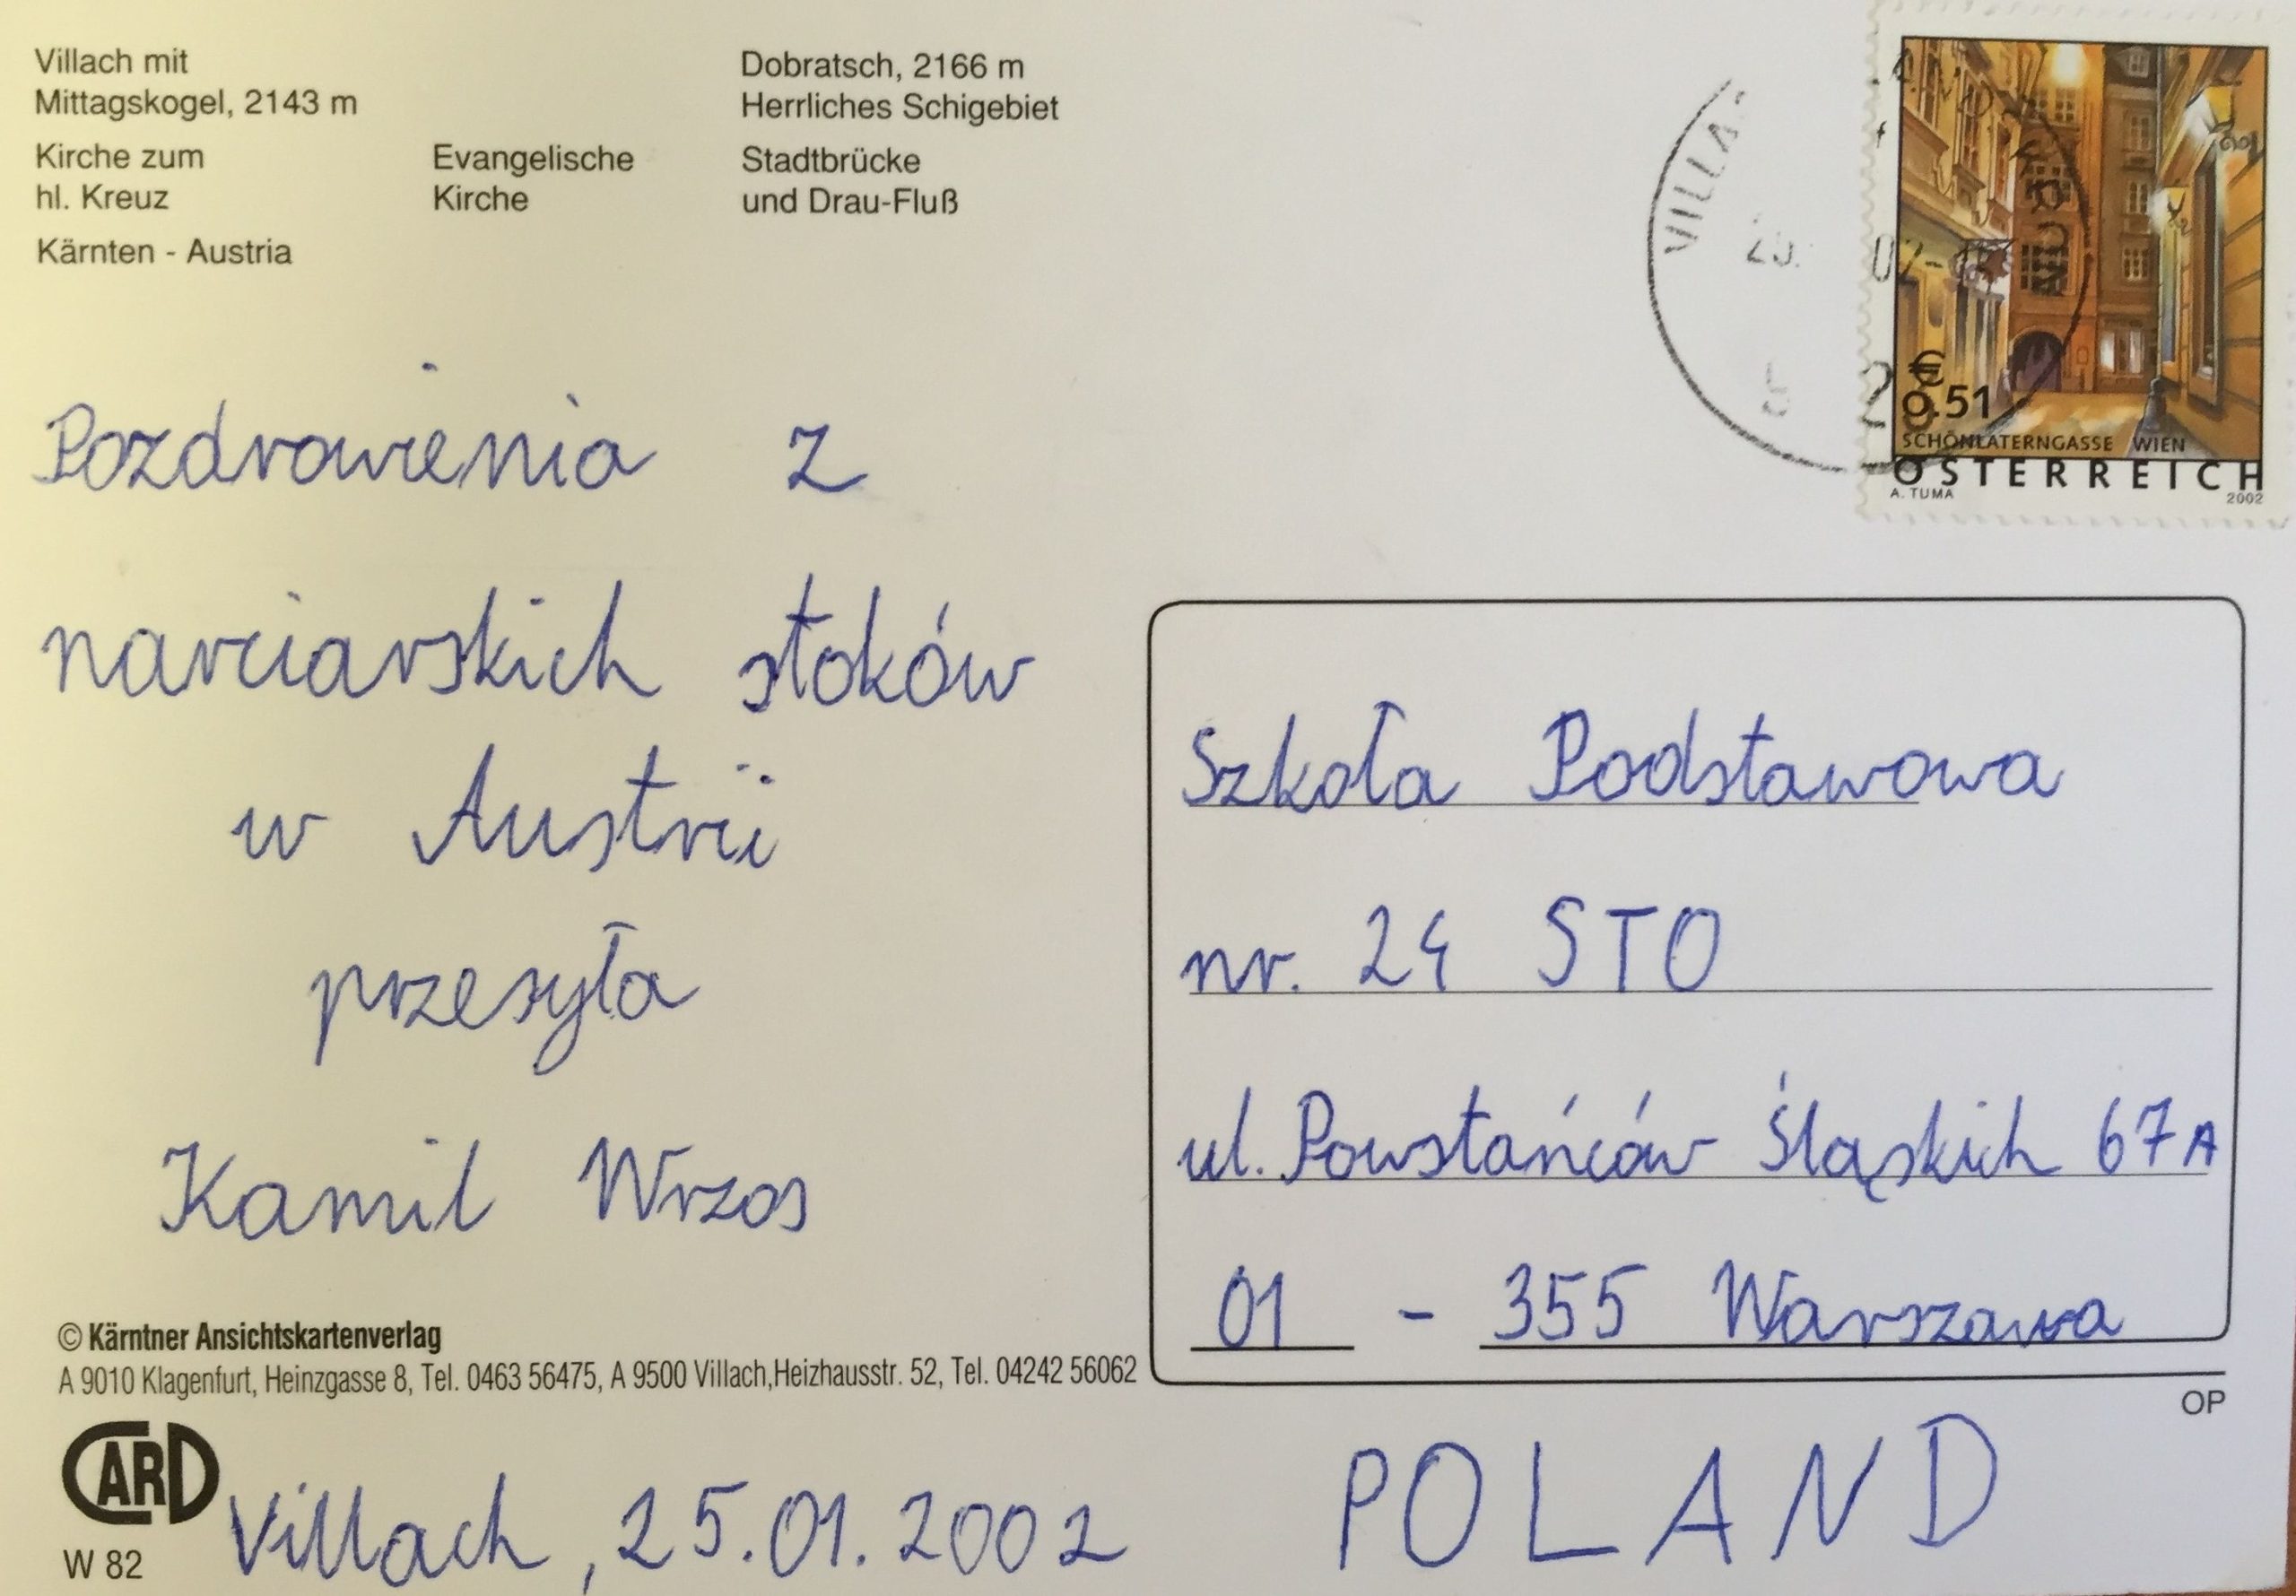 Villach mit
Mittagskogel, 2143 m
Dobratsch, 2166 m
Herrliches Schigebiet
Kirche zum
hl. Kreuz
Evangelische
Kirche
Stadtbrücke
und Drau-Fluß
Kärnten - Austria
€
0.51
SCHÖNLATERNGASSE WIEN
ÖSTERREICH
A. TUMA 2002
Pozdrowienia z
narciarskich stoków
w Austrii
przesyła
Kamil Wrzos
Szkoła Podstawowa
nr. 24 STO
ul. Powstańców Śląskich 67A
01 - 355 Warszawa
© Kärntner Ansichtskartenverlag
A 9010 Klagenfurt, Heinzgasse 8, Tel. 0463 56475, A 9500 Villach,Heizhausstr. 52, Tel. 04242 56062
OP
CARD
W 82
Villach, 25.01.2002
POLAND